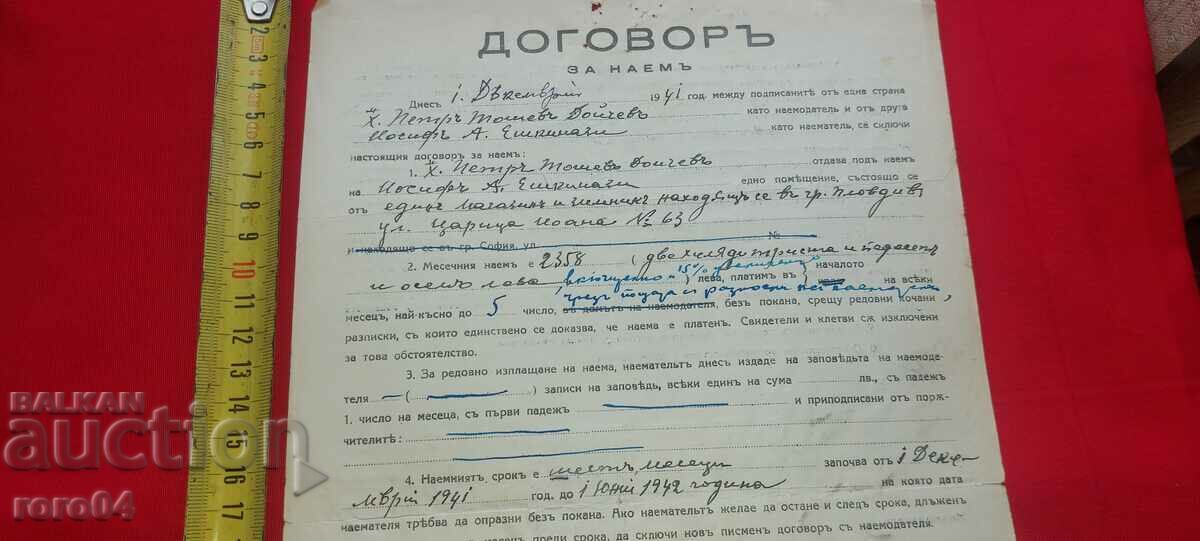 ДОГОВОРЪ
ЗА НАЕМЪ
Днесъ 1. Декемврий 1941 год. между подписанитѣ отъ една страна
Х. Петръ Тошевъ Дойчевъ като наемодатель и отъ друга
Иосифъ А. Ешкинази като наематель, се сключи
настоящия договоръ за наемъ:
1. Х. Петръ Тошевъ Дойчевъ отдава подъ наемъ
на Иосифъ А. Ешкинази едно помѣщение, състояще се
отъ единъ магазинъ и зимникъ находящъ се въ гр. Пловдивъ,
ул. Царица Иоана № 63
и находящо се въ гр. София, ул. №
2. Месечния наемъ е 2358 (две хиляди триста и педесетъ
и осемъ лева, включително 15% увеличение) лева, платимъ въ началото на всѣки
месецъ, най-късно до 5 число, въ домътъ на наемодателя, безъ покана, срещу редовни кочани
чрезъ пощата съ разноски на наемателя,
разписки, съ които единствено се доказва, че наема е платенъ. Свидетели и клетви сѫ изключени
за това обстоятелство.
3. За редовно изплащане на наема, наемательтъ днесъ издаде на заповѣдьта на наемоде-
теля ( ) записи на заповѣдь, всѣки единъ на сума лв., съ падежъ
1. число на месеца, съ първи падежъ и приподписани отъ порж-
чителитѣ:
4. Наемниятъ срокъ е шестъ месеци започва отъ 1 Деке-
мврий 1941 год. до 1 Юний 1942 година на която дата
наемателя трѣбва да опразни безъ покана. Ако наемательтъ желае да остане и следъ срока, длъженъ
месецъ преди срока, да сключи новъ писменъ договоръ съ наемодателя.
2 3 4 5 6 7 8 9 10 11 12 13 14 15 16 17
BALKAN
auction
roro04